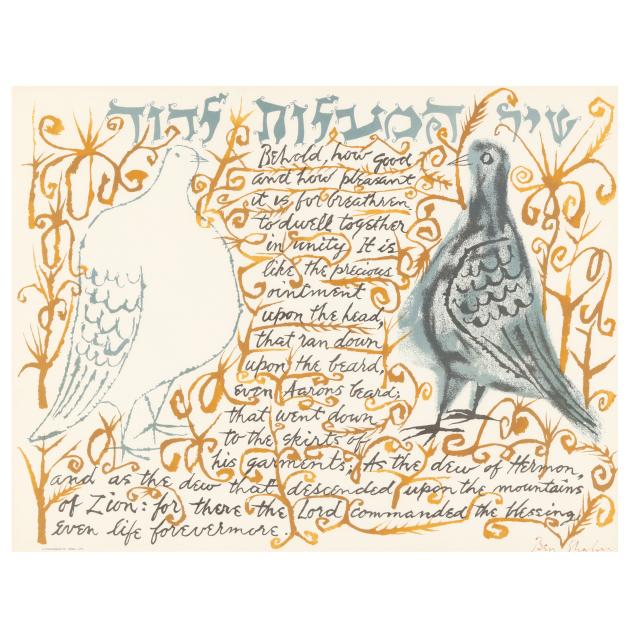 שיר המעלות לדוד
Behold, how good
and how pleasant
it is for breathren
to dwell together
in unity. It is
like the precious
ointment
upon the head,
that ran down
upon the beard,
even Aarons beard;
that went down
to the skirts of
his garments; As the dew of Hermon,
and as the dew that descended upon the mountains
of Zion: for there the Lord commanded the blessing,
Even life forevermore.
Ben Shahn